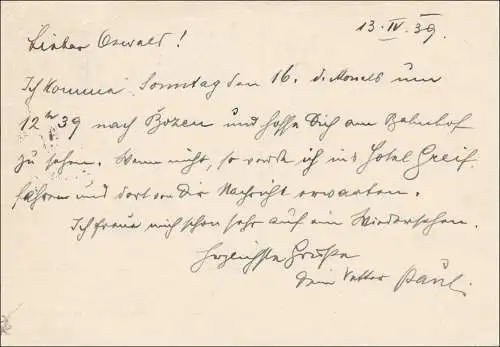 13. IV. 39.
Lieber Oswald!
Ich komme Sonntag den 16. d. Monats um
12 h 39 nach Bozen und hoffe Dich am Bahnhof
zu sehen. Wenn nicht, so werde ich ins Hotel Greif
fahren und dort von Dir Nachricht erwarten.
Ich freue mich schon sehr auf ein Wiedersehen.
Herzlichste Grüße
Dein Vetter Paul.